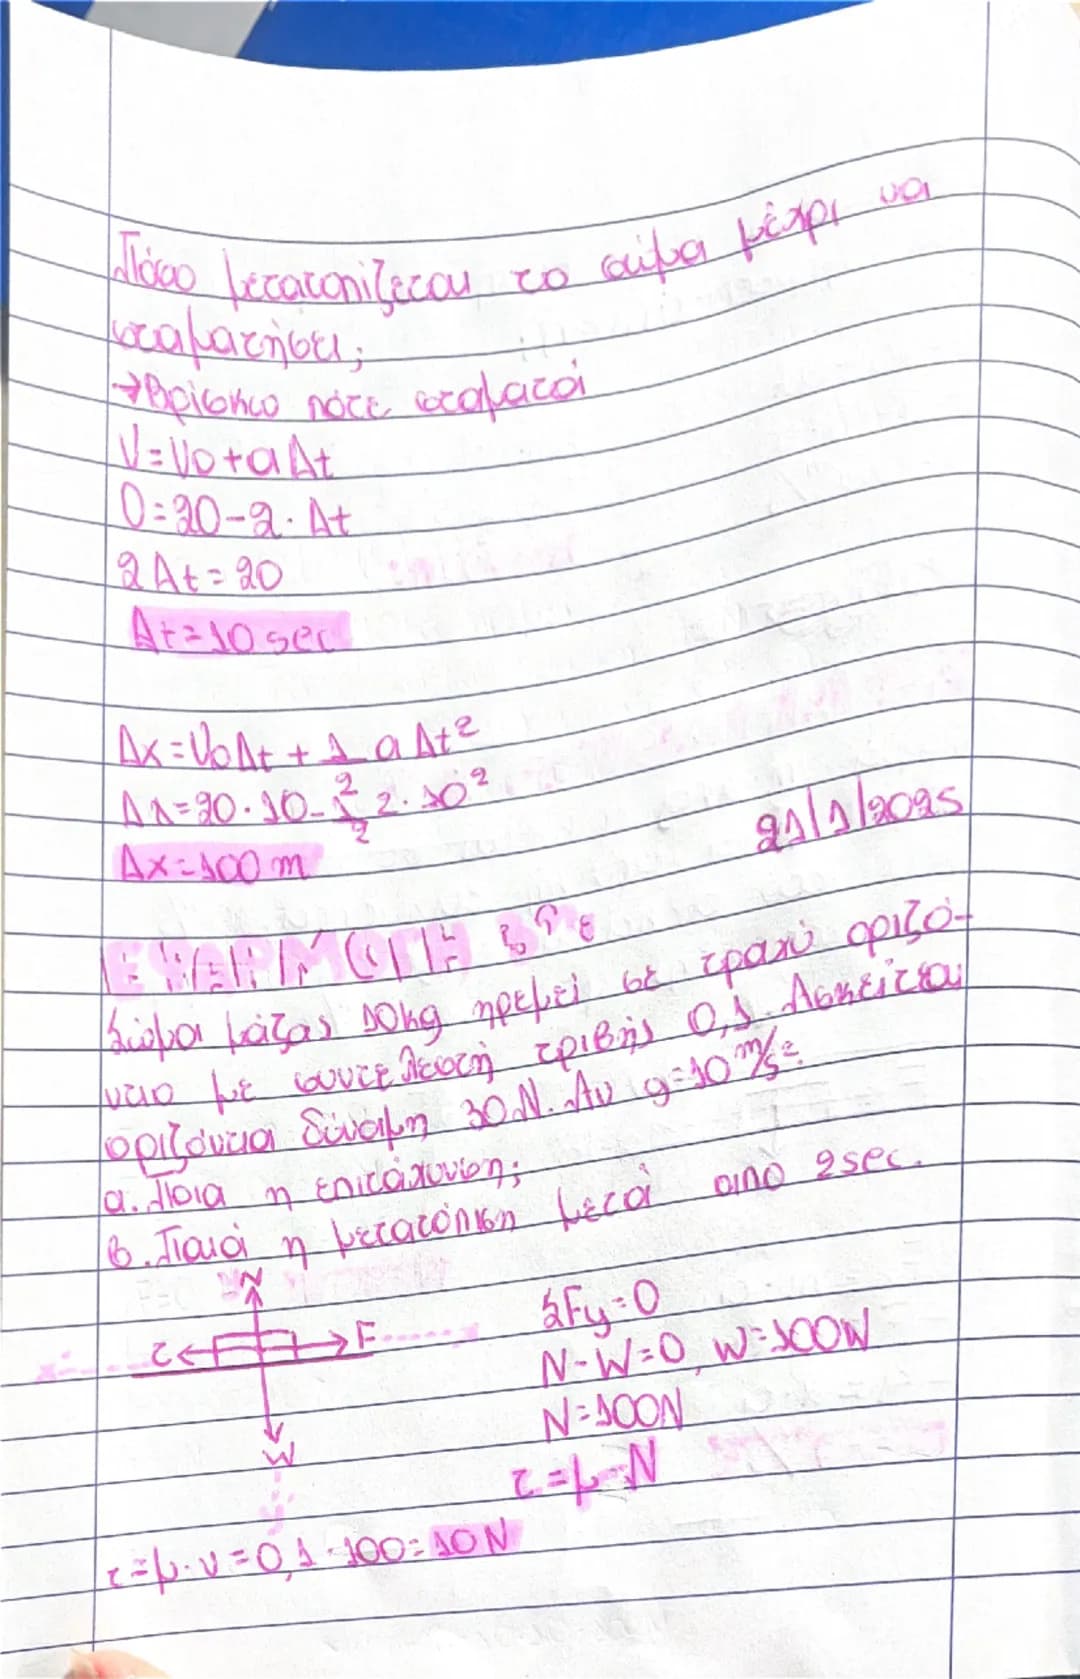 Πόσο μετατοπίζεται το σώμα μέχρι να
σταματήσει;
→Βρίσκω πότε σταματά
V=V0+aΔt
0=20-2·Δt
2Δt=20
Δt=10 sec
Δx=V0Δt + 1/2 a Δt²
Δx=20·10-1/2 2·10²
Δx=100 m
21/1/2025
ΕΦΑΡΜΟΓΗ
Σώμα μάζας 10kg ηρεμεί σε τραχύ οριζό-
ντιο με συντελεστή τριβής 0,1. Ασκείται
οριζόντια δύναμη 30N. Αν g=10 m/s².
α. Ποια η επιτάχυνση;
β. Ποιά η μετατόπιση μετά από 2sec.
N
ΣFy=0
τ F
N-W=0, W=100W
N=100N
W
τ=μ·N
τ=μ·ν=0,1·100=10N